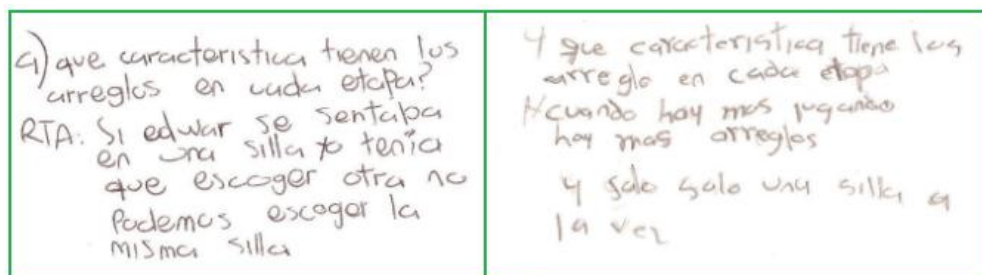 4) que caracteristica tienen los
arreglos en cada etapa?
RTA: Si edwar se sentaba
en una silla yo tenia
que escoger otra no
Podemos escoger la
misma silla
4 que caracteristica tiene los
arreglo en cada etapa
cuando hay mas jugando
hay mas arreglos
y solo solo una silla a
la vez